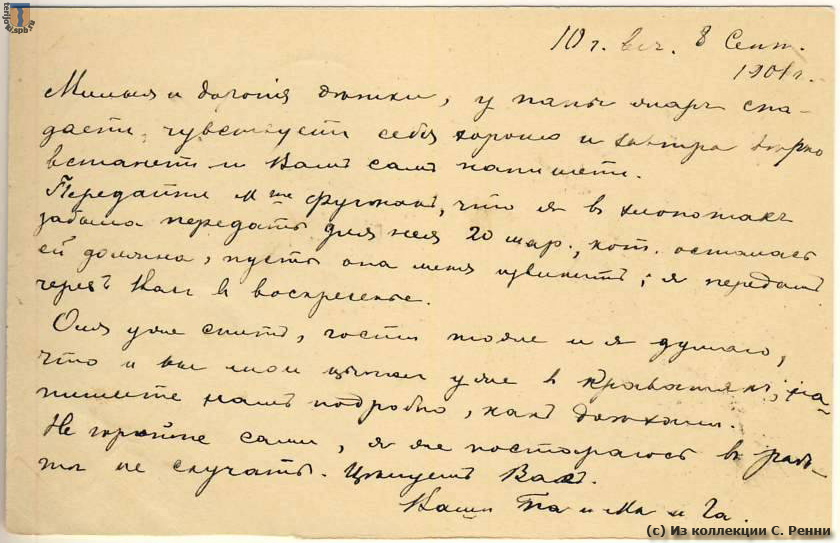 terijoki.spb.ru
10 г. веч. 8 Сент.
1901 г.
Милыя и дорогія дѣтки, у папы жаръ спа-
даетъ, чувствуетъ себя хорошо и завтра
встанетъ и Вамъ самъ напишетъ.
Передайте M-me, что я в хлопотахъ
забыла передать для нея 20 мар., кот. осталась
ей должна, пусть она меня извинитъ; я передамъ
черезъ Васъ в воскресенье.
Оля уже спитъ, гости тоже и я думаю,
что и вы мои уже в кроватяхъ; на-
пишите намъ подробно, какъ доѣхали.
Не горюйте сами, я же постараюсь в
не скучать. Цѣлуемъ Васъ.
Ваши Па и Ма и Га.
(c) Из коллекции С. Ренни